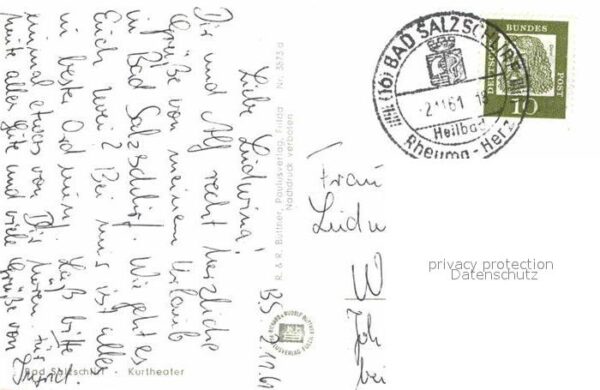 B.S. 2.11.61
Liebe Ludwina!
Dir und Alf recht herzliche
Grüße von meinem Urlaub
in Bad Salzschlirf. Wie geht es
Euch zwei? Bei uns ist alles
in bester Ordnung. Laß bitte
einmal etwas von Dir hören. Für
heute alles Gute und viele Grüße von
Ingrid.
Bad Salzschlirf - Kurtheater
R. & R. Büttner, Paulusverlag, Fulda Nr. 3573 d
Nachdruck verboten
RICHARD & RUDOLF BÜTTNER
PAULUSVERLAG FULDA
(16) BAD SALZSCHLIRF
-2.11.61 18
Heilbad
Rheuma - Herz
DEUTSCHE BUNDESPOST
10
Frau
Ludw
W
Joh
bei
privacy protection
Datenschutz